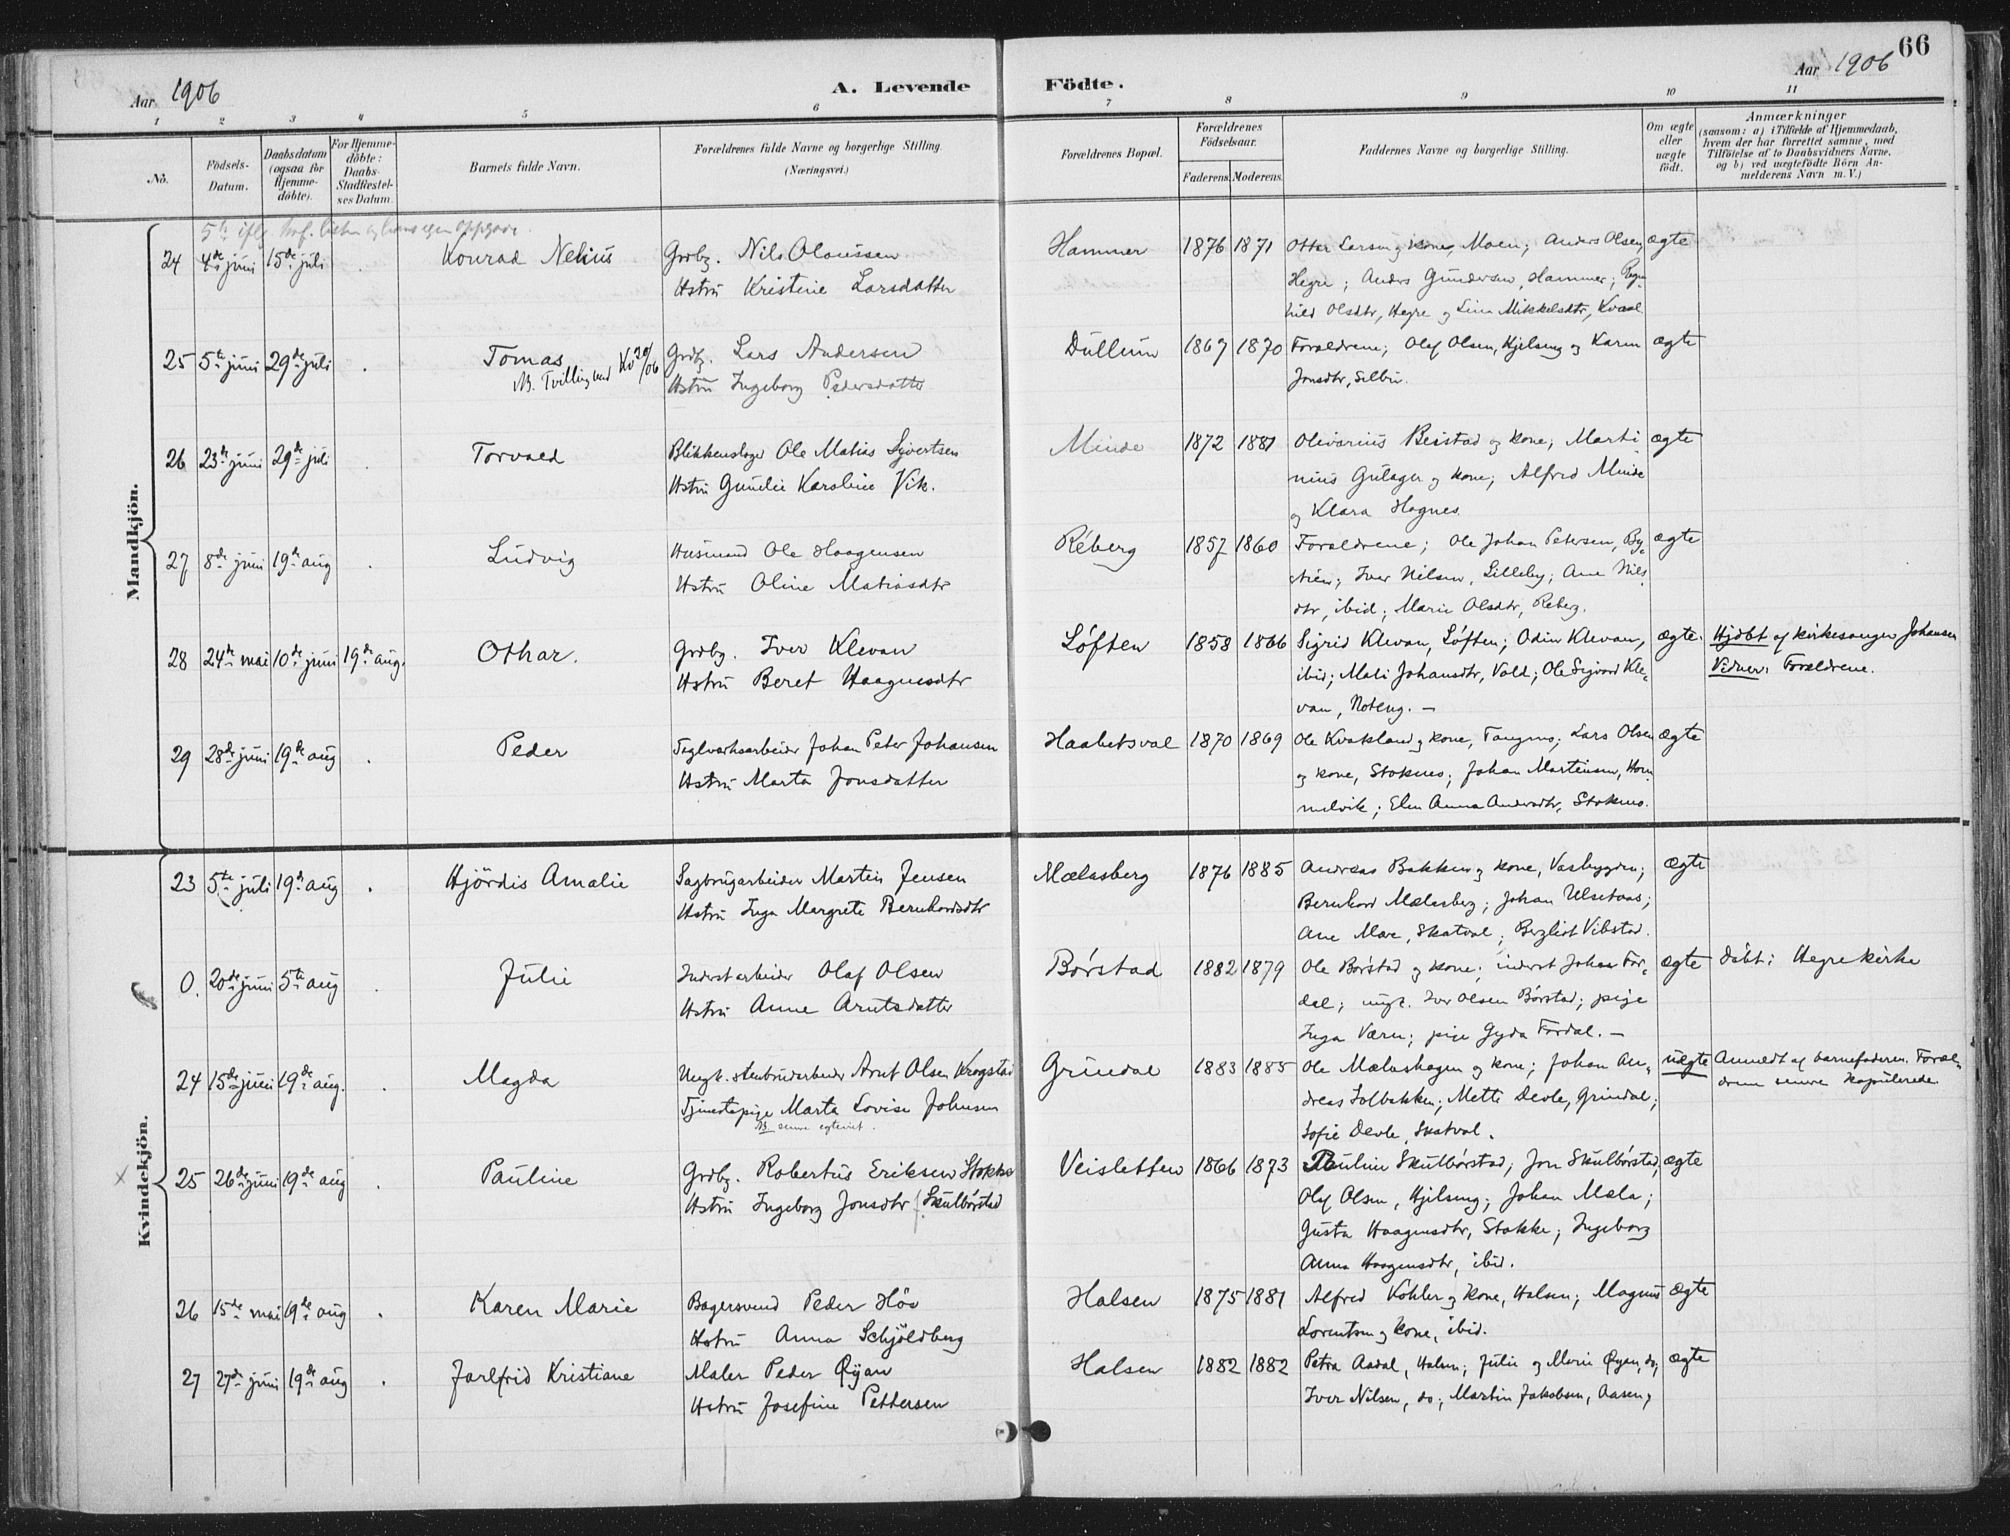 66
Aar 1906
A. Levende
Födte.
Aar 1906
1 2 3 4 5 6 7 8 9 10 11
No.
Födsels-Datum.
Daabsdatum (ogsaa for Hjemme-döbte).
For Hjemme-döbte: Daabs-Stadfæstel-ses Datum.
Barnets fulde Navn.
Forældrenes fulde Navne og borgerlige Stilling.
(Næringsvei.)
Forældrenes Bopæl.
Forældrenes Födselsaar.
Faderens. Moderens.
Faddernes Navne og borgerlige Stilling.
Om ægte eller uægte födt.
Anmærkninger
(saasom: a) i Tilfælde af Hjemmedaab,
hvem der har forrettet samme, med
Tilföielse af to Daabsvidners Navne.
og b) ved uægtefödte Börn An-
melderens Navn m. V.)
Mandkjön.
5te iflg. konf. listen og hans egen oppgave
24 4de juni 15de juli Konrad Nelius Grdbr. Nils Olaussen Hammer 1876 1871 Ottar Larsen og kone, Moen; Anders Olsen, ægte
Hstru Kristine Larsdatter Hegre; Anders Gundersen, Hammer; Ragn-
hild Olsdtr, Hegre og Lina Mikkelsdtr, Kvaal
25 5te juni 29de juli Tomas Grdbr. Lars Andersen Dullum 1867 1870 Forældrene; Olaf Olsen, Hjelseng og Karen ægte
NB. Tvilling med Kv 20/06 Hstru Ingeborg Pedersdatter Jonsdtr, Selbu.
26 23de juni 29de juli Torvald Blikkenslager Ole Matias Syvertsen Minde 1872 1881 Olivarius Beistad og kone; Marti- ægte
Hstru Gunelie Karoline Vik. nius Gulager og kone; Alfred Minde
og Klara Hognes.
27 8de juni 19de aug Ludvig Husmand Ole Haagensen Réberg 1857 1860 Forældrene; Ole Johan Petersen, By- ægte
Hstru Oline Matiasdtr Iver Nilsen, Lilleby; Ane Nils-
dtr, ibid; Marie Olsdtr, Reberg.
28 24de mai 10de juni 19de aug. Othar. Grdbr. Iver Klevan Løften 1858 1866 Sigrid Klevan, Løften; Odin Klevan, ægte. Hjdbt af kirkesanger Johansen
Hstru Beret Haagensdtr ibid; Mali Johansdtr, Vold; Ole Sigvard Kle- Vidner: Forældrene.
van, Noteng. —
29 28de juni 19de aug Peder Teglverksarbeider Johan Peter Johansen Haabetsval 1870 1869 Ole Kvakland og kone, Tangmo; Lars Olsen ægte
Hstru Marta Jonsdatter og kone, Stoknes; Johan Martinsen, Hom-
melvik; Elen Anna Andersdtr, Stokmo.
Kvindekjön.
23 5te juli 19de aug Hjördis Amalie Sagbrugarbeider Martin Jensen Mælasberg 1876 1885 Andreas Bakken og kone, Vasbygden; ægte
Hstru Inga Margrete Bernhardsdtr Bernhard Mælasberg; Johan Ulsetaas;
Ane Mære, Skatval; Bergliot Vibstad.
0. 20de juni 5te aug Julie Inderst arbeider Olaf Olsen Børstad 1882 1879 Ole Børstad og kone; inderst Johan For- ægte døbt i Hegre kirke
Hstru Anne Arntsdatter dal; ungk. Iver Olsen Børstad; pige
Inga Værn; pige Gyda Fordal. —
24 15de juni 19de aug. Magda Ungk. stenbrudarbeider Arnt Olsen Krogstad Grindal 1883 1885 Ole Mælashagen og kone; Johan An- uægte Anmeldt af barnefaderen. Foræl-
Tjenestepige Marta Lovise Johnsen dreas Solbakken; Mette Devle, Grindal; drene senere kopulerede.
NB senere egteviet. Sofie Devle, Skatval.
25 26de juni 19de aug Pauline Grdbr. Robertus Eriksen Stokke Veisletten 1866 1873 Pauline Skulbørstad; Jon Skulbørstad, ægte
Hstru Ingeborg Jonsdtr f. Skulbørstad Olaf Olsen, Hjelseng; Johan Mæla;
Gusta Haagensdtr, Stokke; Ingeborg
Anna Haagensdtr, ibid.
26 15de mai 19de aug Karen Marie Bagersvend Peder Höe Halsen 1875 1881 Alfred Köhler og kone, Halsen; Magnus ægte
Hstru Anna Schjöldberg Lorentsen og kone, ibid.
27 27de juni 19de aug Jarlfrid Kristiane Maler Peder Øyan Halsen 1882 1882 Petra Aadal, Halsen; Julie og Marie Øyan, do; ægte
Hstru Josefine Pettersen Iver Nilsen, do; Martin Jakobsen, Aasen,